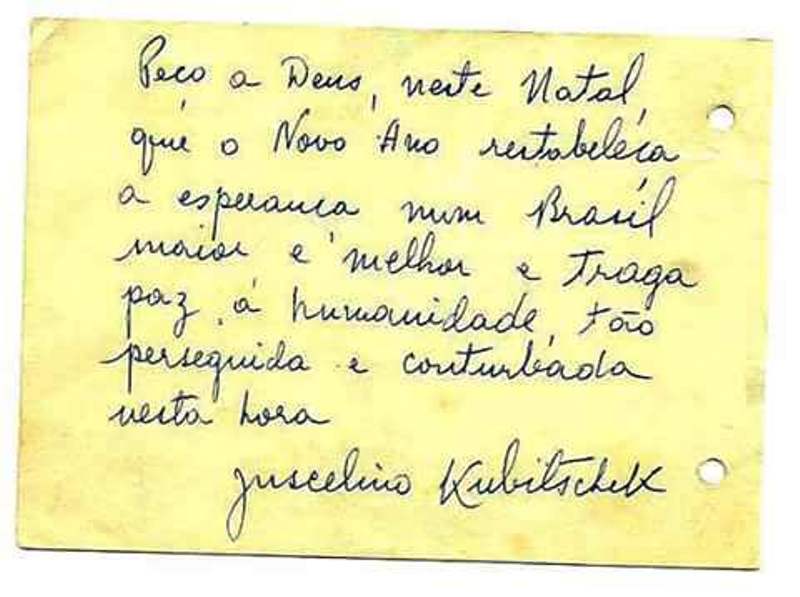 Peço a Deus, neste Natal,
que o Novo Ano restabeleça
a esperança num Brasil
maior e melhor e traga
paz à humanidade, tão
perseguida e conturbada
nesta hora
Juscelino Kubitschek